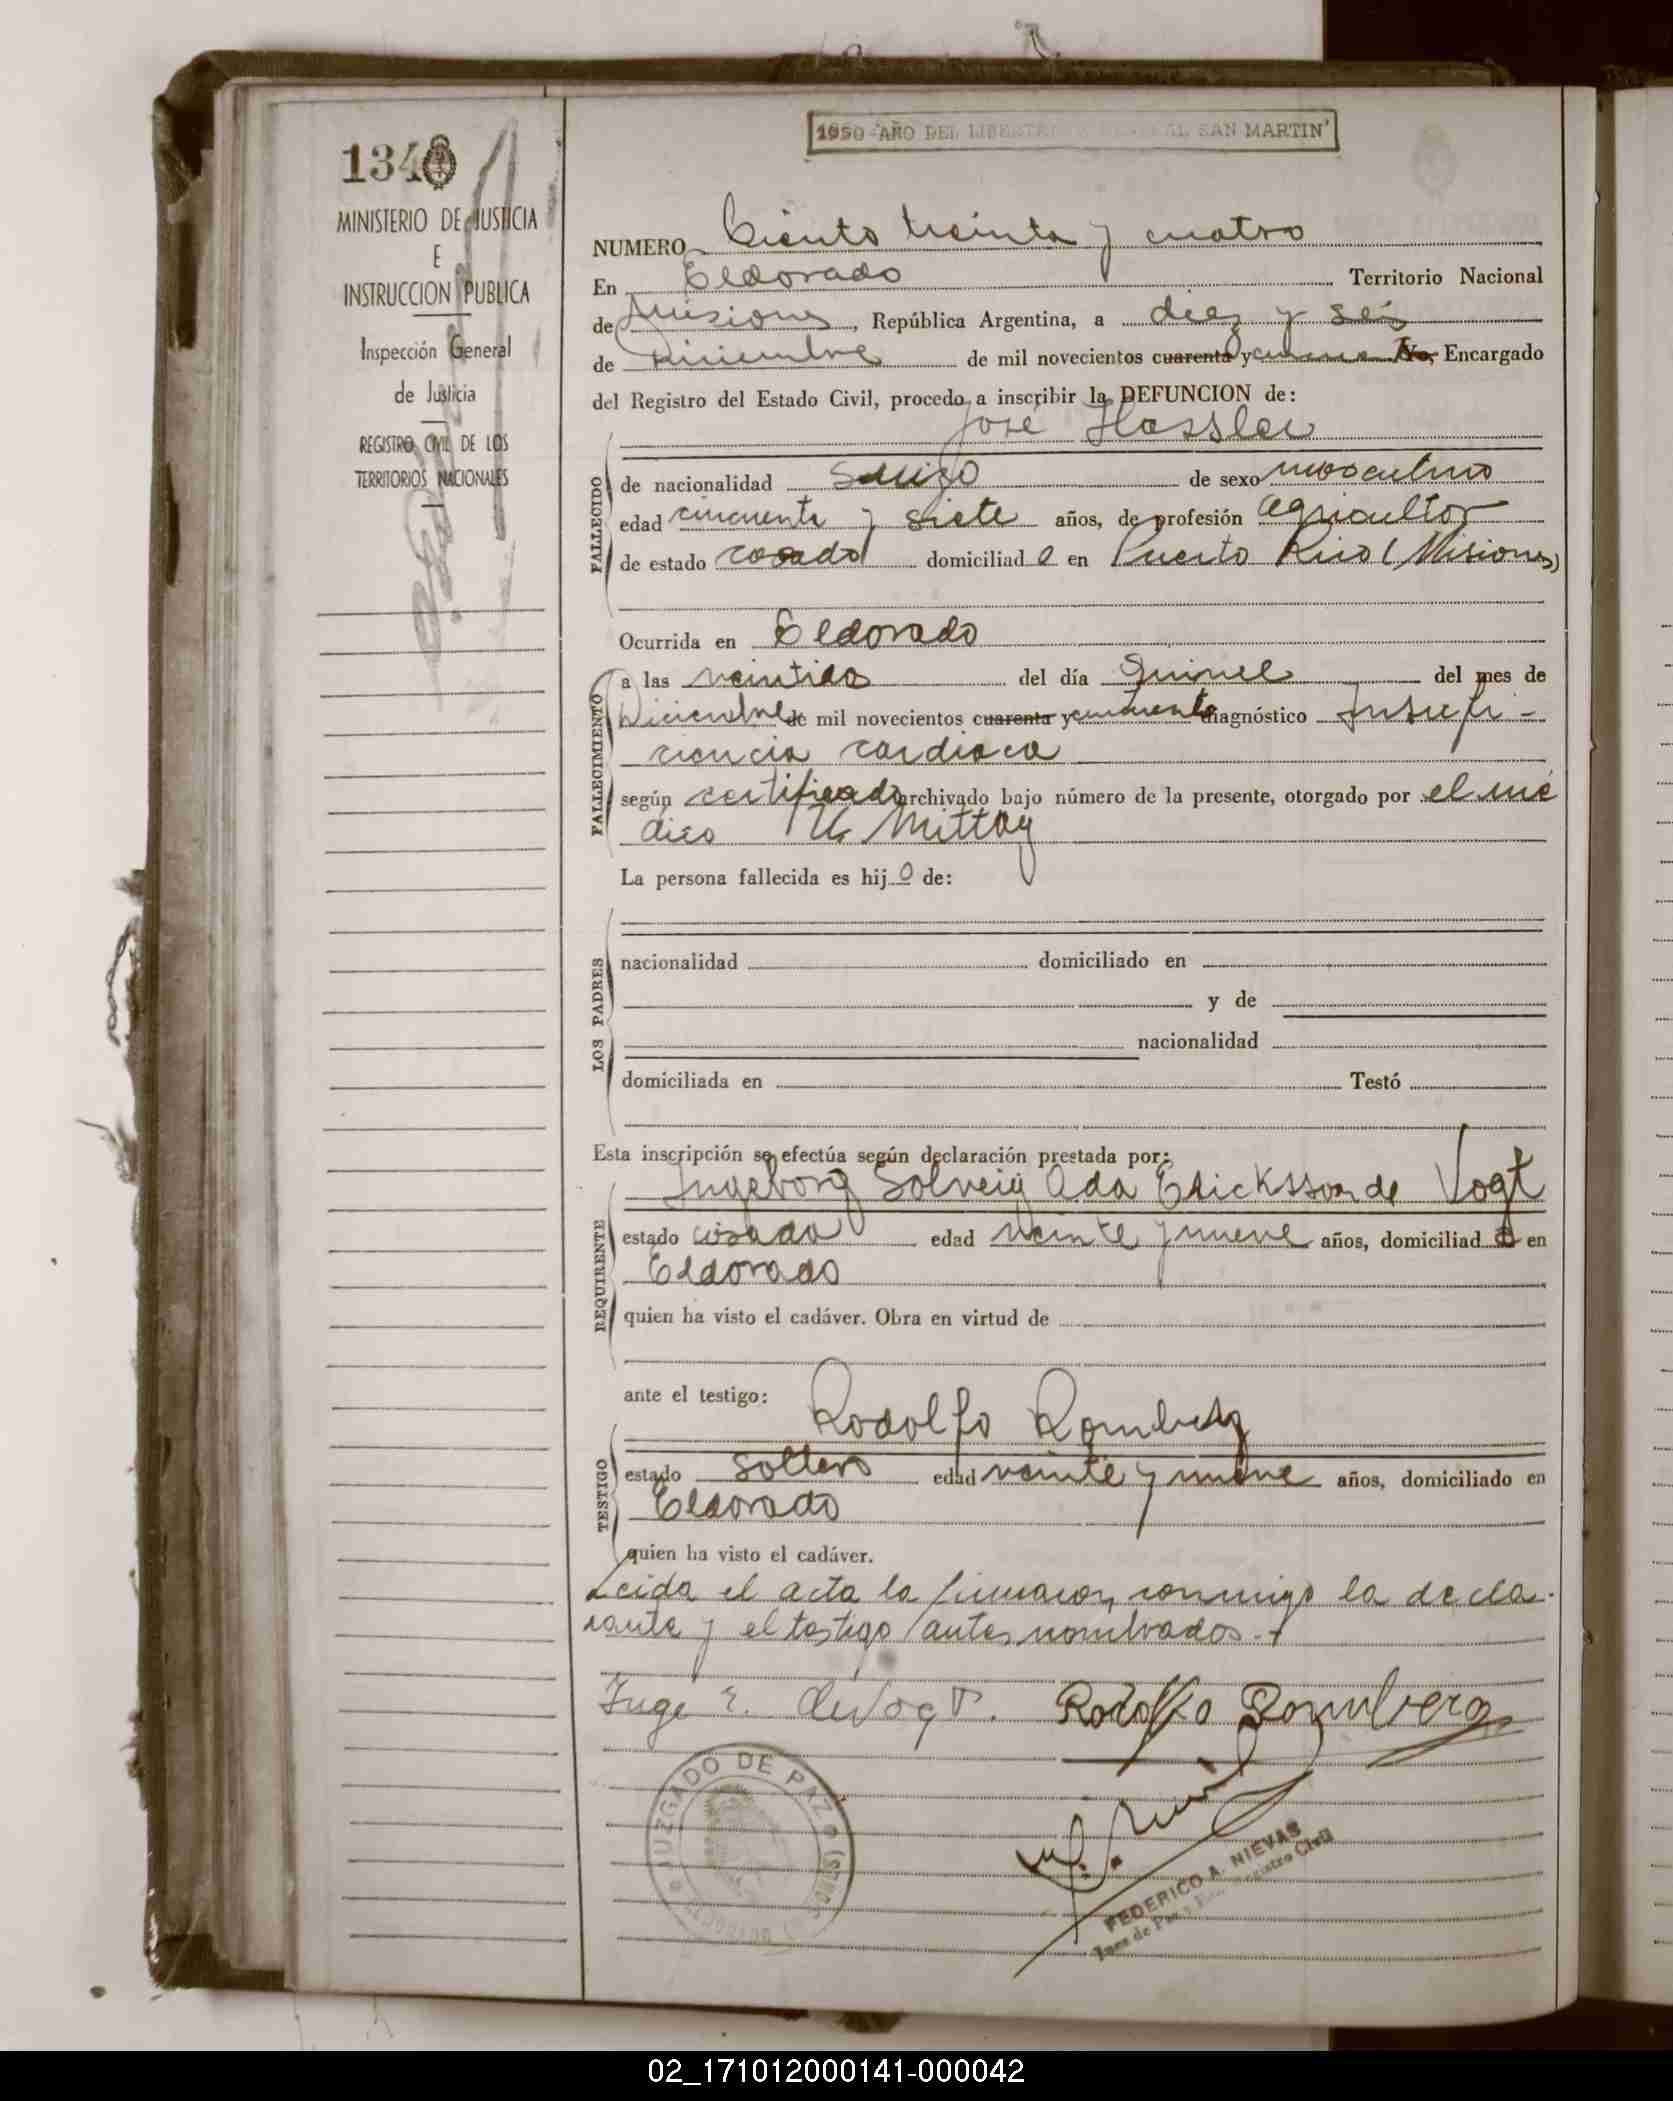 134
MINISTERIO DE JUSTICIA
E
INSTRUCCION PUBLICA
Inspección General
de Justicia
REGISTRO CIVIL DE LOS
TERRITORIOS NACIONALES
1950 "AÑO DEL LIBERTADOR GENERAL SAN MARTIN"
NUMERO Ciento treinta y cuatro
En Eldorado Territorio Nacional
de Misiones, República Argentina, a diez y seis
de Diciembre de mil novecientos cuarenta y cincuenta Yo, Encargado
del Registro del Estado Civil, procedo a inscribir la DEFUNCION de:
José Hassler
FALLECIDO
de nacionalidad suizo de sexo masculino
edad cincuenta y siete años, de profesión agricultor
de estado casado domiciliado en Puerto Rico (Misiones)
Ocurrida en Eldorado
FALLECIMIENTO
a las veintidos del día quince del mes de
Diciembre de mil novecientos cuarenta y cincuenta diagnóstico Insufi-
ciencia cardiaca
según certificado archivado bajo número de la presente, otorgado por el mé
dico Mittay
La persona fallecida es hijo de:
LOS PADRES
nacionalidad domiciliado en
y de
nacionalidad
domiciliada en Testó
Esta inscripción se efectúa según declaración prestada por:
Ingeborg Solveig Ada Ericksson de Vogt
REQUIRENTE
estado casada edad veinte y nueve años, domiciliada en
Eldorado
quien ha visto el cadáver. Obra en virtud de
ante el testigo: Rodolfo Romberg
TESTIGO
estado soltero edad veinte y nueve años, domiciliado en
Eldorado
quien ha visto el cadáver.
Leida el acta la firmaron conmigo la decla-
rante y el testigo antes nombrados.-
Inge E. de Vogt. Rodolfo Romberg
JUZGADO DE PAZ
FEDERICO A. NIEVAS
Juez de Paz y Enc. Registro Civil
02_171012000141-000042